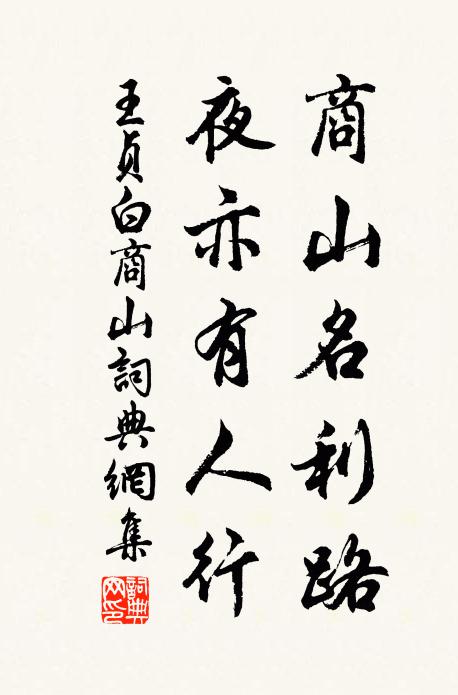 商山名利路
夜亦有人行
王貞白商山詞典網集
詞典網印